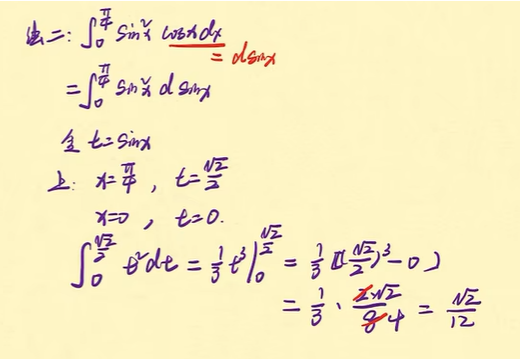 法二: ∫₀^(π/4) sin²x cosx dx = dsinx
= ∫₀^(π/4) sin²x d sinx
令 t=sinx
上: x=π/4, t=√2/2
x=0, t=0.
∫₀^(√2/2) t²dt = 1/3 t³|₀^(√2/2) = 1/3 [(√2/2)³-0)
= 1/3 · 2×√2/8 4 = √2/12